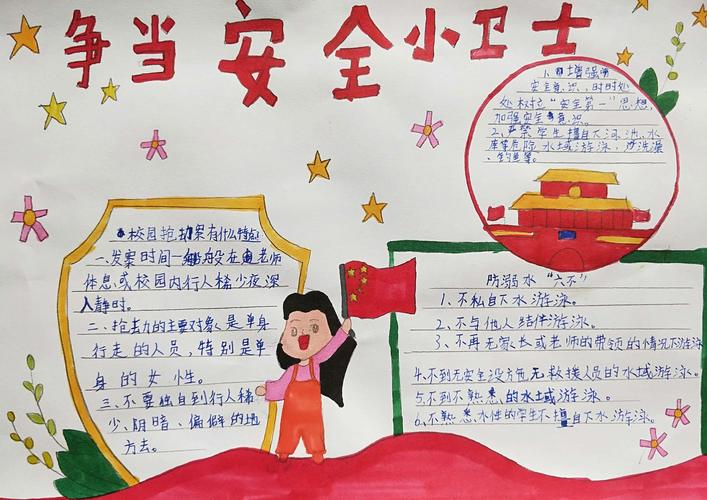 争当安全小卫士
1、增强
安全意识,时时处
处树立“安全第一”思想,
加强安全意识。
2、严禁学生擅自下河、池、水
库等危险水域游泳,洗澡
、钓鱼等。
校园抢劫案有什么特点
一、发案时间一般在老师
休息或校园内行人稀少夜深
人静时。
二、抢劫的主要对象是单身
行走的人员,特别是单
身的女性。
三、不要独自到行人稀
少、阴暗、偏僻的地
方去。
防溺水“六不”
1、不私自下水游泳。
2、不与他人结伴游泳。
3、不再无家长或老师的带领的情况下游泳
4、不到无安全设施无救援人员的水域游泳。
5、不到不熟悉的水域游泳。
6、不熟悉水性的学生不擅自下水游泳。